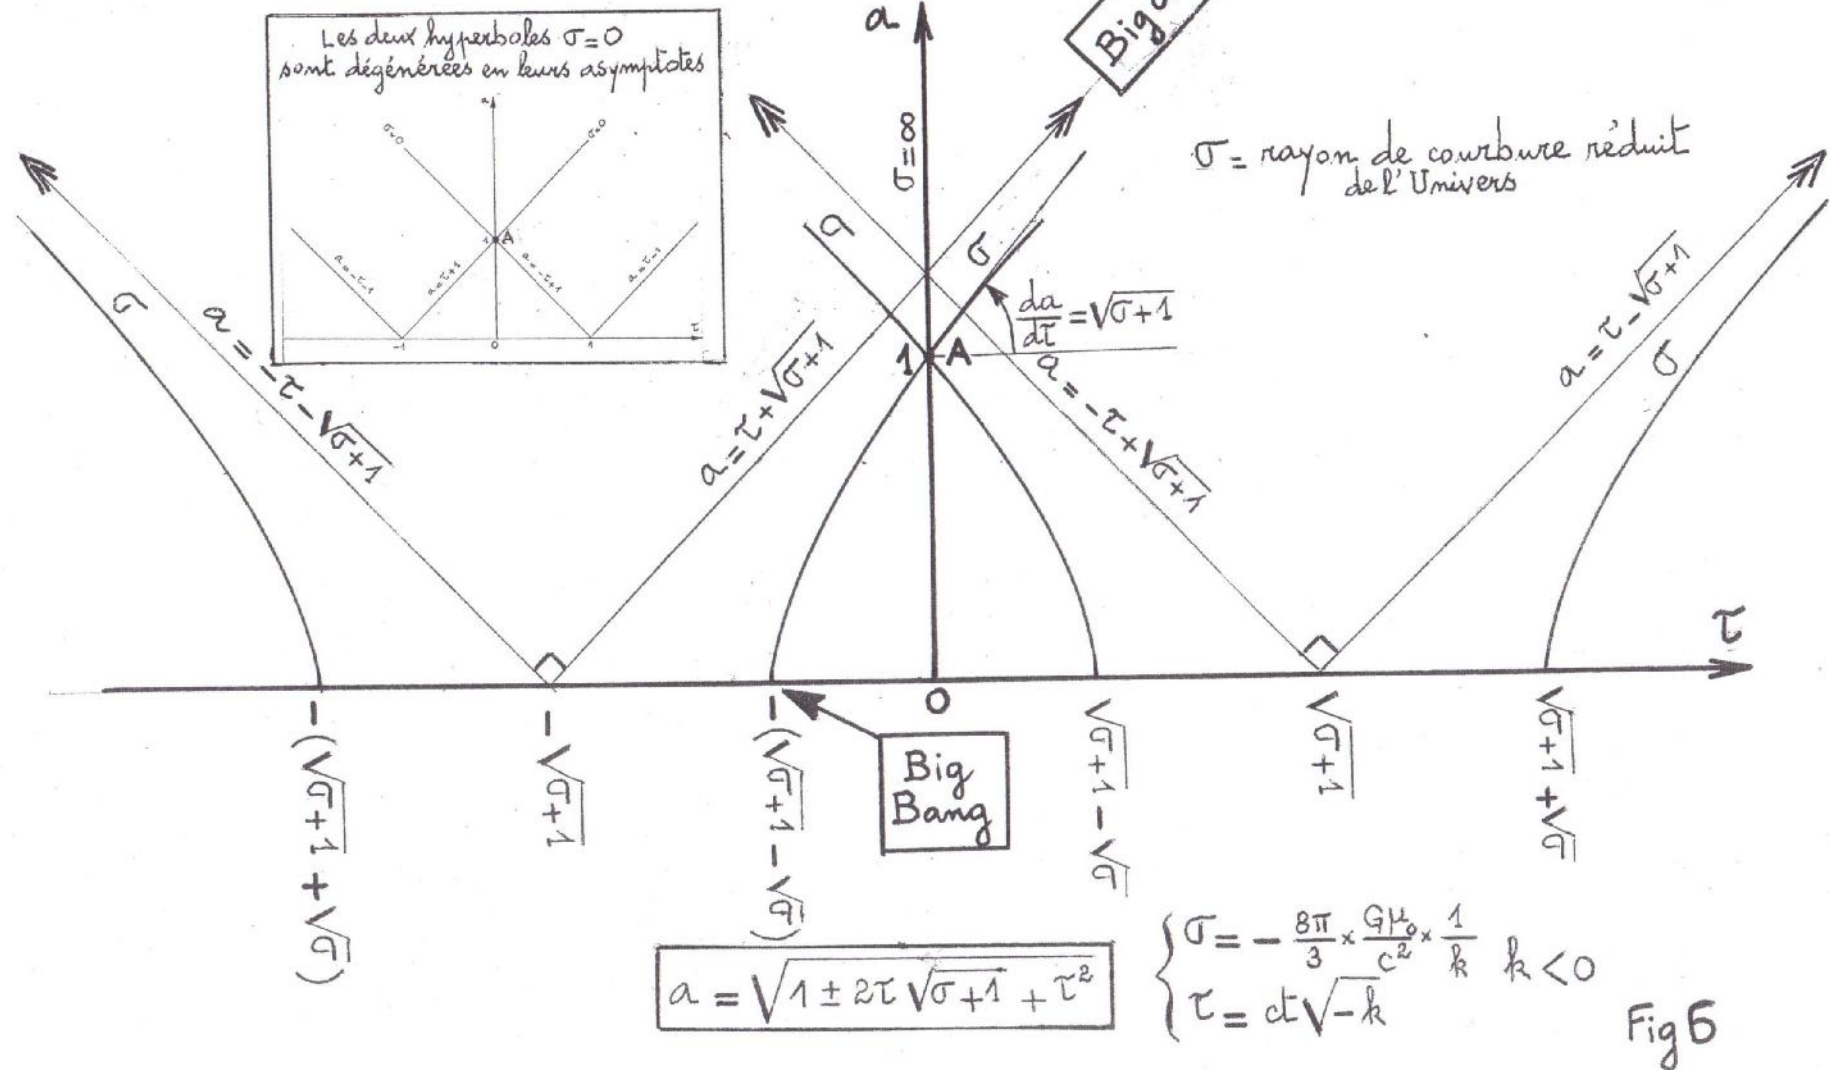 Les deux hyperboles σ=0
sont dégénérées en leurs asymptotes
a
σ=0
σ=0
1
A
a=-τ-1
a=τ+1
a=-τ+1
a=τ-1
-1
0
1
τ
a
σ=∞
σ = rayon de courbure réduit
de l'Univers
σ
σ
σ
σ
a = -τ - √σ+1
a = τ + √σ+1
da/dτ = √σ+1
1
A
a = -τ + √σ+1
a = τ - √σ+1
τ
0
-(√σ+1 + √σ)
-√σ+1
-(√σ+1 - √σ)
√σ+1 - √σ
√σ+1
√σ+1 + √σ
Big
Bang
a = √1 ± 2τ √σ+1 + τ²
σ = - 8π/3 × Gμ₀/c² × 1/k k < 0
τ = ct√-k
Fig 6